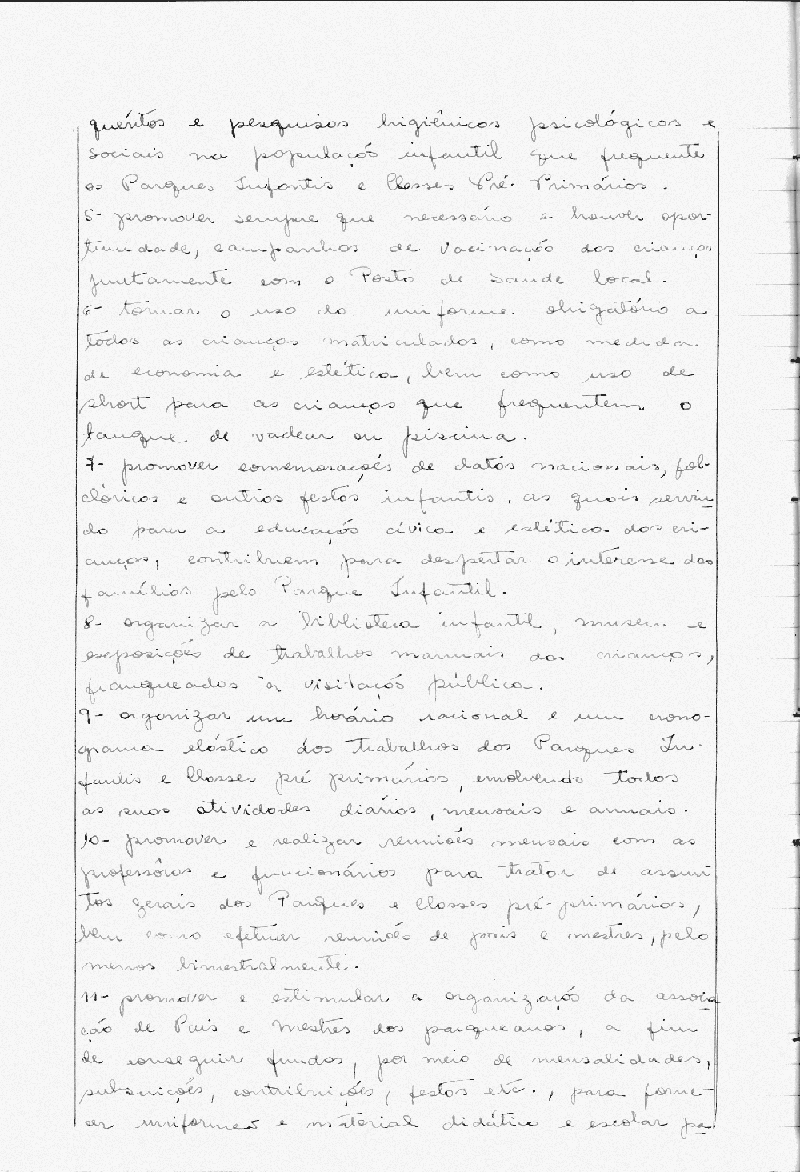 quéritos e pesquisas higiênicas psicológicas e
sociais na população infantil que frequente
os Parques Infantis e Classes Pré-Primários.
5- promover sempre que necessário e houver opor-
tunidade, campanhas de vacinação das crianças
juntamente com o Posto de Saúde local.
6- tornar o uso do uniforme obrigatório a
todas as crianças matriculadas, como medida
de economia e estética, bem como uso de
short para as crianças que frequentem o
tanque de vadear ou piscina.
7- promover comemorações de datas nacionais, fol-
clóricas e outras festas infantis, as quais servin-
do para a educação cívica e estética das cri-
anças, contribuem para despertar o interesse das
famílias pelo Parque Infantil.
8- organizar a biblioteca infantil, museu e
exposições de trabalhos manuais das crianças,
franqueados à visitação pública.
9- organizar um horário racional e um crono-
grama elástico dos trabalhos dos Parques In-
fantis e Classes pré primários, envolvendo todos
as suas atividades diárias, mensais e anuais.
10- promover e realizar reuniões mensais com as
professôras e funcionários para tratar de assun
tos gerais dos Parques e Classes pré-primários,
bem como efetuar reuniões de pais e mestres, pelo
menos bimestralmente.
11- promover e estimular a organização da associa
ção de Pais e Mestres dos parqueanos, a fim
de conseguir fundos, por meio de mensalidades,
subvenções, contribuições, festas etc., para forne-
cer uniformes e material didático e escolar pa-